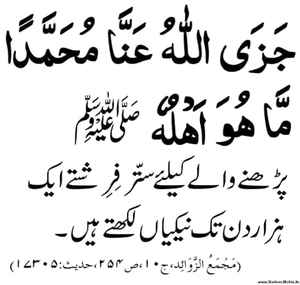 جَزَى اللّٰهُ عَنَّا مُحَمَّدًا
مَّا هُوَ اَهْلُهٗ ﷺ
پڑھنے والے کیلئے ستّر فِرِشتے ایک
ہزار دن تک نیکیاں لکھتے ہیں۔
(مَجْمَعُ الزَّوَائِد، ج۱۰، ص۲۵۴، حدیث: ۱۷۳۰۵)